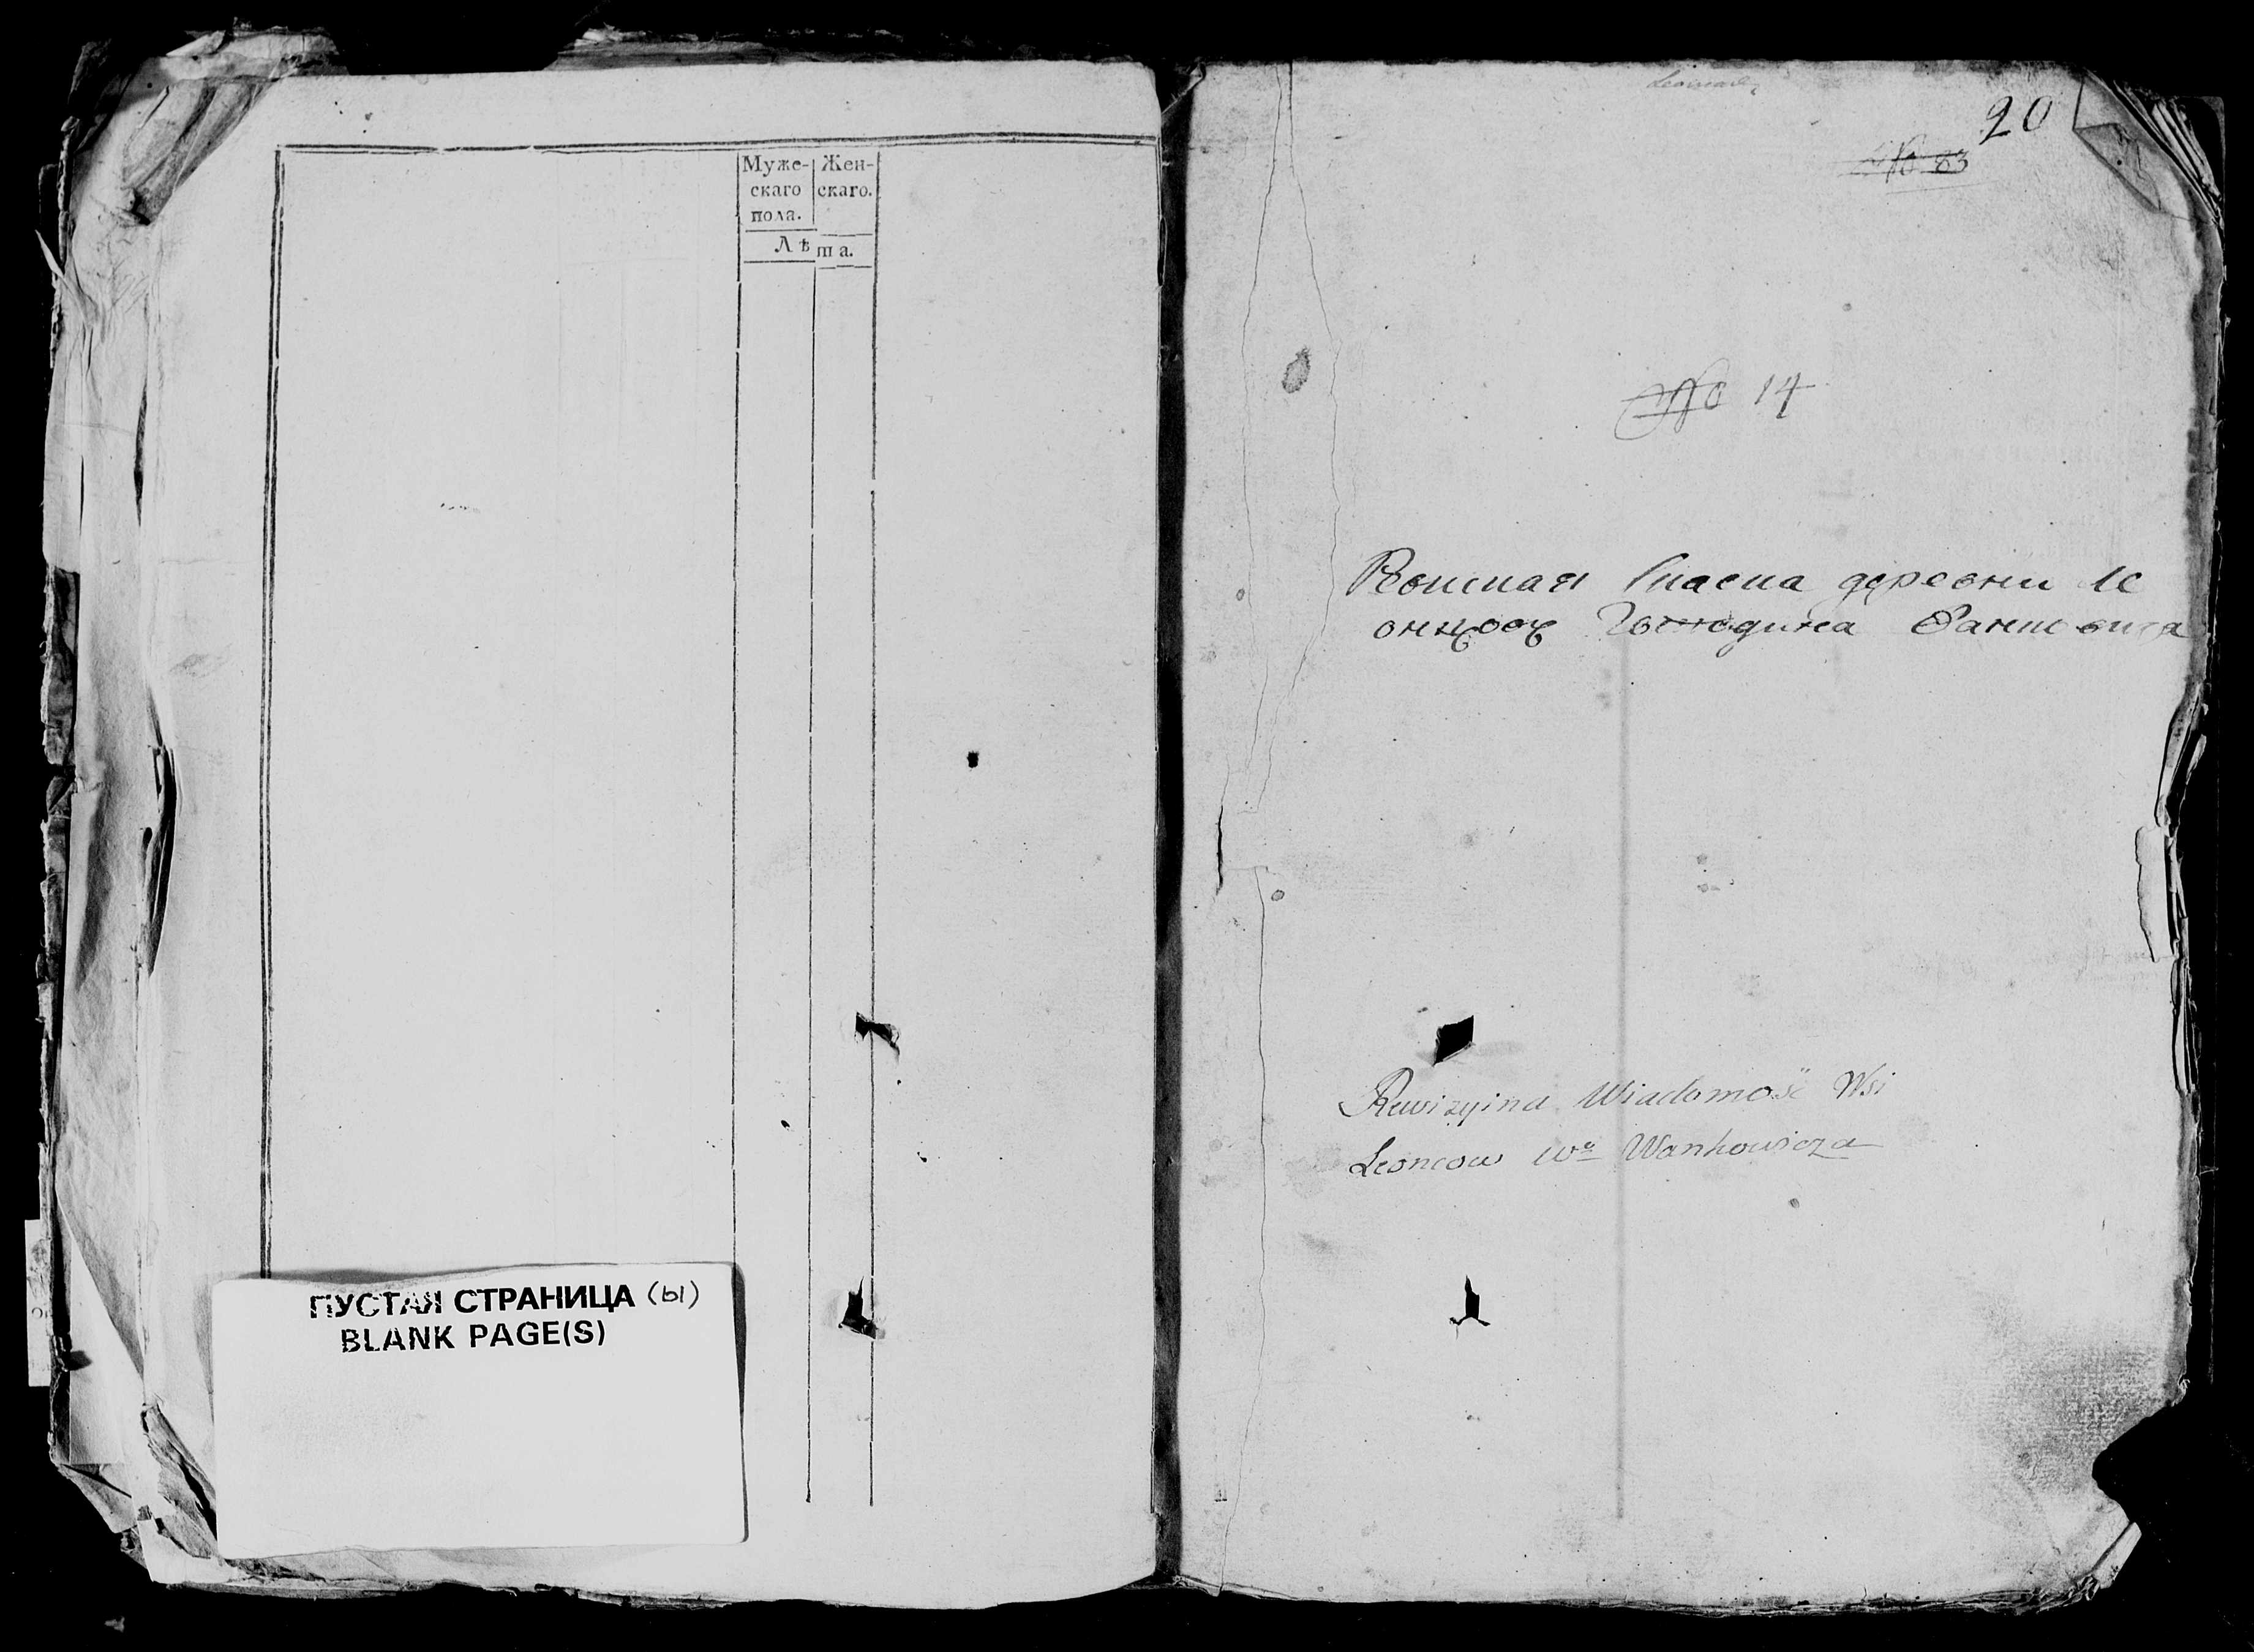 Муже- Жен-
скаго скаго.
пола.
Лѣта.
ПУСТАЯ СТРАНИЦА (ы)
BLANK PAGE(S)
20
№ 83
№ 14
Сказка деревни Ле
онцовъ Господина Ваньковича
Rewizyina Wiadomość Wsi
Leoncow Wo Wankowicza